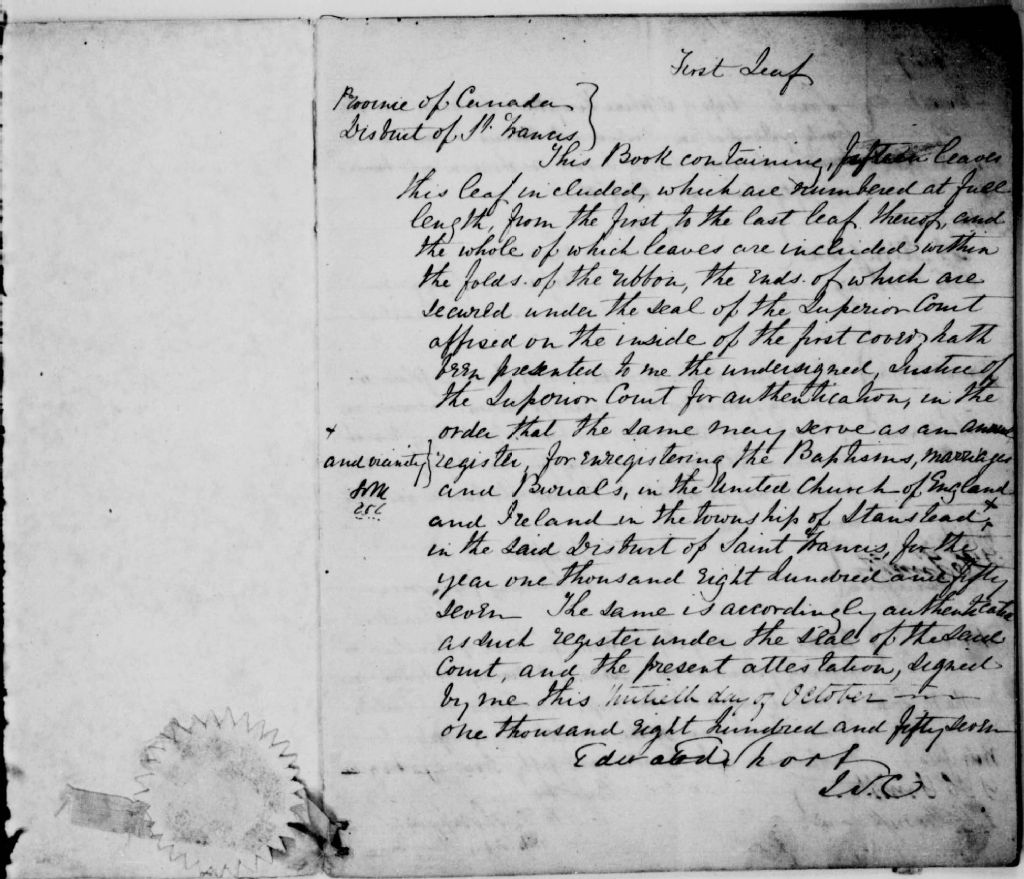 First Leaf
Province of Canada
District of St. Francis
This Book containing, fifteen leaves
this leaf included, which are numbered at full
length, from the first to the last leaf thereof, and
the whole of which leaves are included within
the folds of the ribbon, the ends of which are
secured under the seal of the Superior Court
affixed on the inside of the first cover, hath
been presented to me the undersigned, Justice of
the Superior Court for authentication, in the
order that the same may serve as an annual
register, for enregistering the Baptisms, marriages
and Burials, in the United Church of England
and Ireland in the township of Stanstead, +
in the said District of Saint Francis, for the
year one thousand eight hundred and fifty
seven The same is accordingly authenticated
as such register under the seal of the said
Court, and the present attestation, signed
by me this day of October
one thousand eight hundred and fifty seven
Edward Short
J.S.C.
+
and vicinity